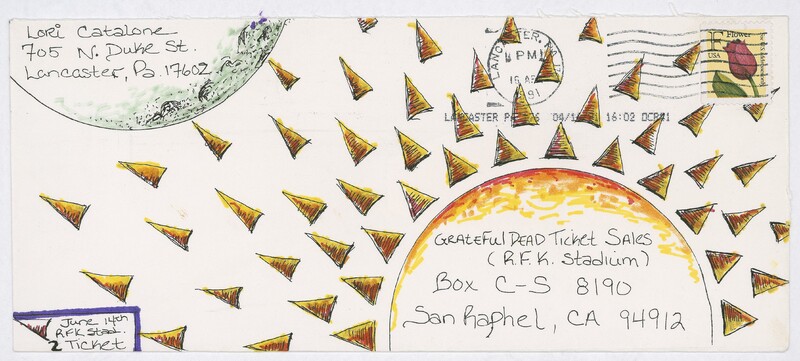 Lori Catalone
705 N. Duke St.
Lancaster, Pa. 17602
LANCASTER, PA
PM
16 AP
91
F Flower
USA
LANCASTER PA 04/16/91 16:02 OCR#1
GRATEFUL DEAD TICKET SALES
(R.F.K. Stadium)
Box C-S 8190
San Raphel, CA 94912
June 14th
R.F.K Stad.
2 Ticket